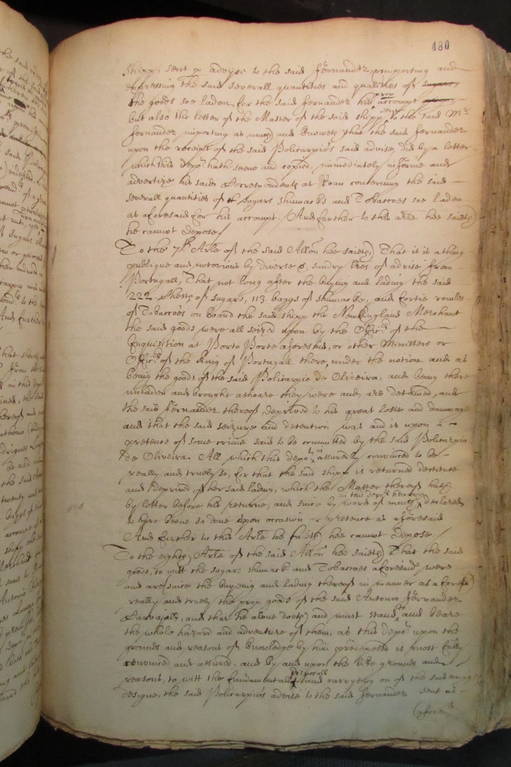 180
shipp sent a advise to the said Fernandez purporting and
expressing the said severall quantities and qualities of
the goods soe laden for the said Fernandez his accompt
but also the letter of the Master of the said shipp to the said Mr
Fernandez importing as much and knoweth that the said Fernandez
upon the receipt of the said Policarpio's said advise did by a letter
which this depot hath seene and copied, immediately informe and
advertize his said Correspondent at Roan conterning the said
severall quantities of sugars shumack and Tobaccoes soe laden
as aforesaid for his accompt, And further to this arle hee saieth
he cannot depose
To the 7th Arle of the said Allon hee saieth, That it is a thing
publique and notorious by diverse & sundry lres of advise from
Portugall, That not long after the buying and lading the said
222 Chests of sugars, 113 baggs of shumack, and fortie roules
of Tobaccoes on board the said shipp the New England Merchant
the said goods were all seized upon by the Officrs of the
Inquisition at Porto Porte aforesaid, or other Ministers or
Officrs of the King of Portugall there, under the notion and as
being the goods of the said Policarpio de Oliveira, and being there
unladen and brought ashoare they were and are detained, and
the said Fernandez thereof deprived to his great losse and dammage
and that the said seizure and detention was and is upon
pretence of some crime said to be committed by the said Policarpio
de Oliveira. All which this depot assuredly conceiveth to be
really and truely so, for that the said shipp is returned destitute
and deprived of her said lading, which the Master thereof hath
by letter before his returne, and since by word of mouth in this depots hearing declared
to have beene so done upon occasion or pretence as aforesaid
And further to this Arle he saieth hee cannot depose
To the eighth Arle of the said Allon hee saieth, That the said
goods, to witt the sugars shumack and Tobaccoes aforesaid were
and are since the buying and lading thereof in manner as aforesaid
really and truely the prop goods of the said Antonio Fernandez
Carvajall, and that he alone doeth, and must stand to and beare
the whole hazard and adventure of them, as this depot upon the
grounds and reasons of knowledge by him predeposed is most fully
convinced and assured, and by and upon the like grounds and
reasons, to witt the fundamentall designe and carrying on of the said
designe, the said Policarpio's advise to the said Fernandez sent as